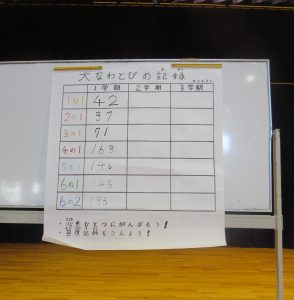 大なわとびの記録
1学期 2学期 3学期
1の1 42
2の1 37
3の1 71
4の1 163
5の1 146
6の1 145
6の2 193
・心をひとつにがんばろう!
・目標記録をこえよう!